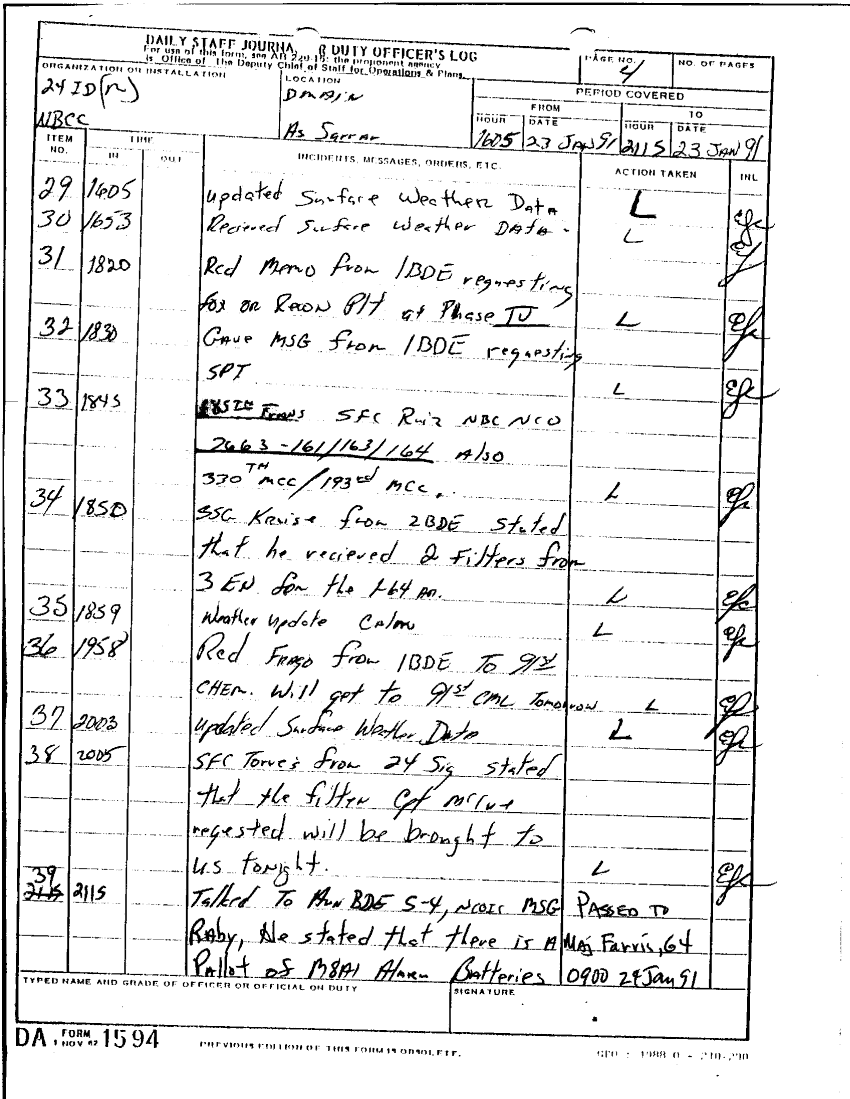 DAILY STAFF JOURNAL OR DUTY OFFICER'S LOG
For use of this form, see AR 220-15; the proponent agency
is Office of The Deputy Chief of Staff for Operations & Plans.
PAGE NO. 4
NO. OF PAGES
ORGANIZATION OR INSTALLATION
24 ID(M)
NBCC
LOCATION
DMAIN
As Sarrar
PERIOD COVERED
FROM TO
HOUR DATE HOUR DATE
1605 23 JAN 91 2115 23 JAN 91
ITEM NO. TIME IN OUT INCIDENTS, MESSAGES, ORDERS, ETC. ACTION TAKEN INL
29 1605 updated Surface Weather Data L Efc
30 1653 Recieved Surface Weather DATA. L Ef
31 1820 Rcd Memo from 1BDE requesting
fox or Recon Plt at Phase IV L Efc
32 1830 Gave MSG from 1BDE requesting
SPT L Efc
33 1845 Trans SFC Ruiz NBC NCO
2663-161/163/164 Also
330TH MCC/193rd MCC. L Efc
34 1850 SSG Kruise from 2BDE stated
that he recieved 2 filters from
3 EN for the 1-64 AR. L Efc
35 1859 Weather update Calm L Efc
36 1958 Rcd Frago from 1BDE To 91st
CHEM. Will get to 91st CML Tomorrow L Efc
37 2003 updated Surface Weather Data L Efc
38 2005 SFC Torres from 24 Sig stated
that the filter Cpt
reqested will be brought to
us tonight. L Efc
39 2115 2115 Talked To Avn BDE S-4, NCOIC MSG PASSED TO
Raby, He stated that there is A Maj Farris, G4
Pallot of M8A1 Alarm Batteries 0900 24 Jan 91
TYPED NAME AND GRADE OF OFFICER OR OFFICIAL ON DUTY
SIGNATURE
DA FORM 1 NOV 62 1594
PREVIOUS EDITION OF THIS FORM IS OBSOLETE.
GPO : 1988 O - 210-290